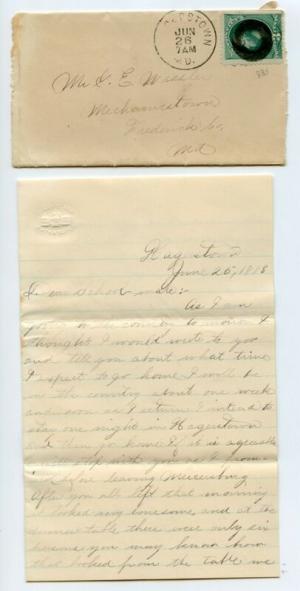 JUN
26
7AM
MD.
Mr. C. E. Wissler
Mechanicstown
Frederick Co.
Md
June 25, 1888
Dear School mate:-
As I am
going in the country to morrow I
thought I would write to you
and tell you about what time
I expect to go home I will be
in the country about one week
and soon as I return I intend to
stay one night in Hagerstown
and then go home if it is agreeable
I will stop with you as I
before leaving Mercersburg
After you all left that morning
looked very lonesome, and at the
dinner table there were only six
persons you may know how
that looked from the table we